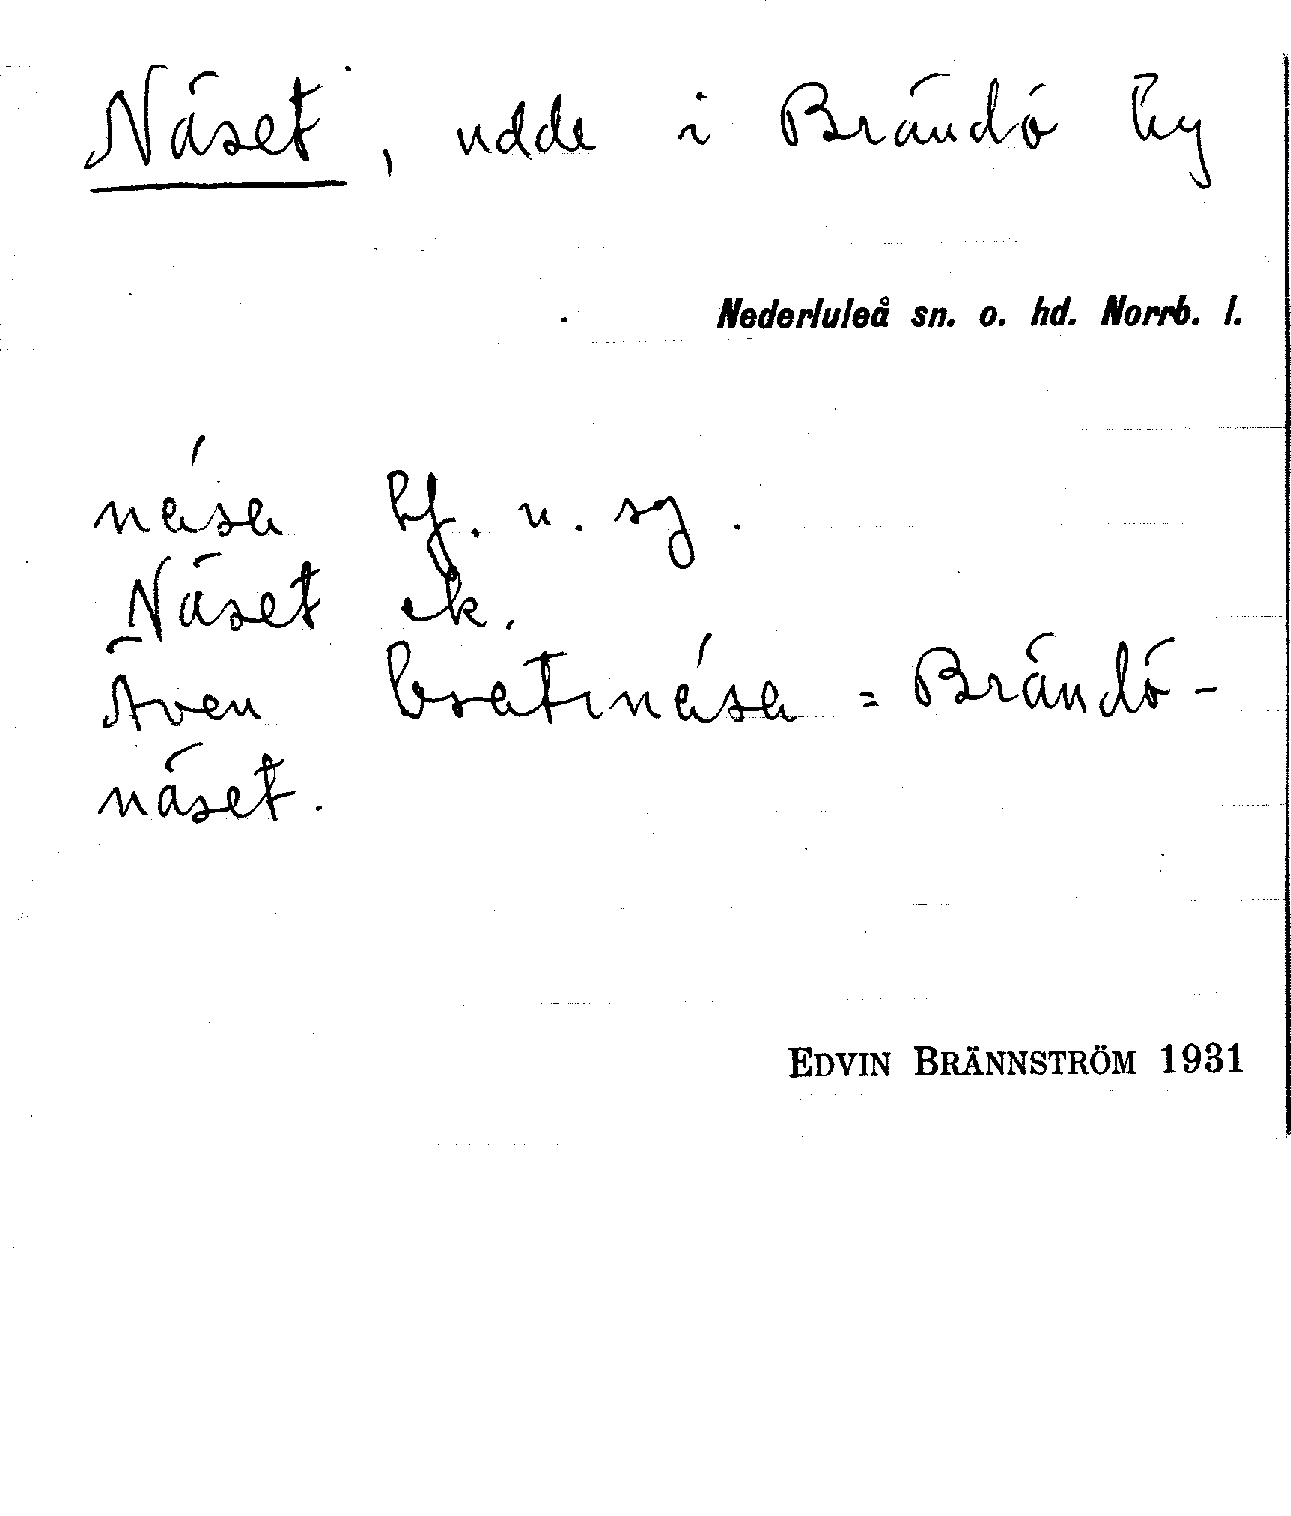 Näset, udde i Brändö by
Nederluleå sn. o. hd. Norrb. l.
nǽsa bf. n. sg.
Näset ek.
Även brætınǽsa = Brändö-
näset.
EDVIN BRÄNNSTRÖM 1931